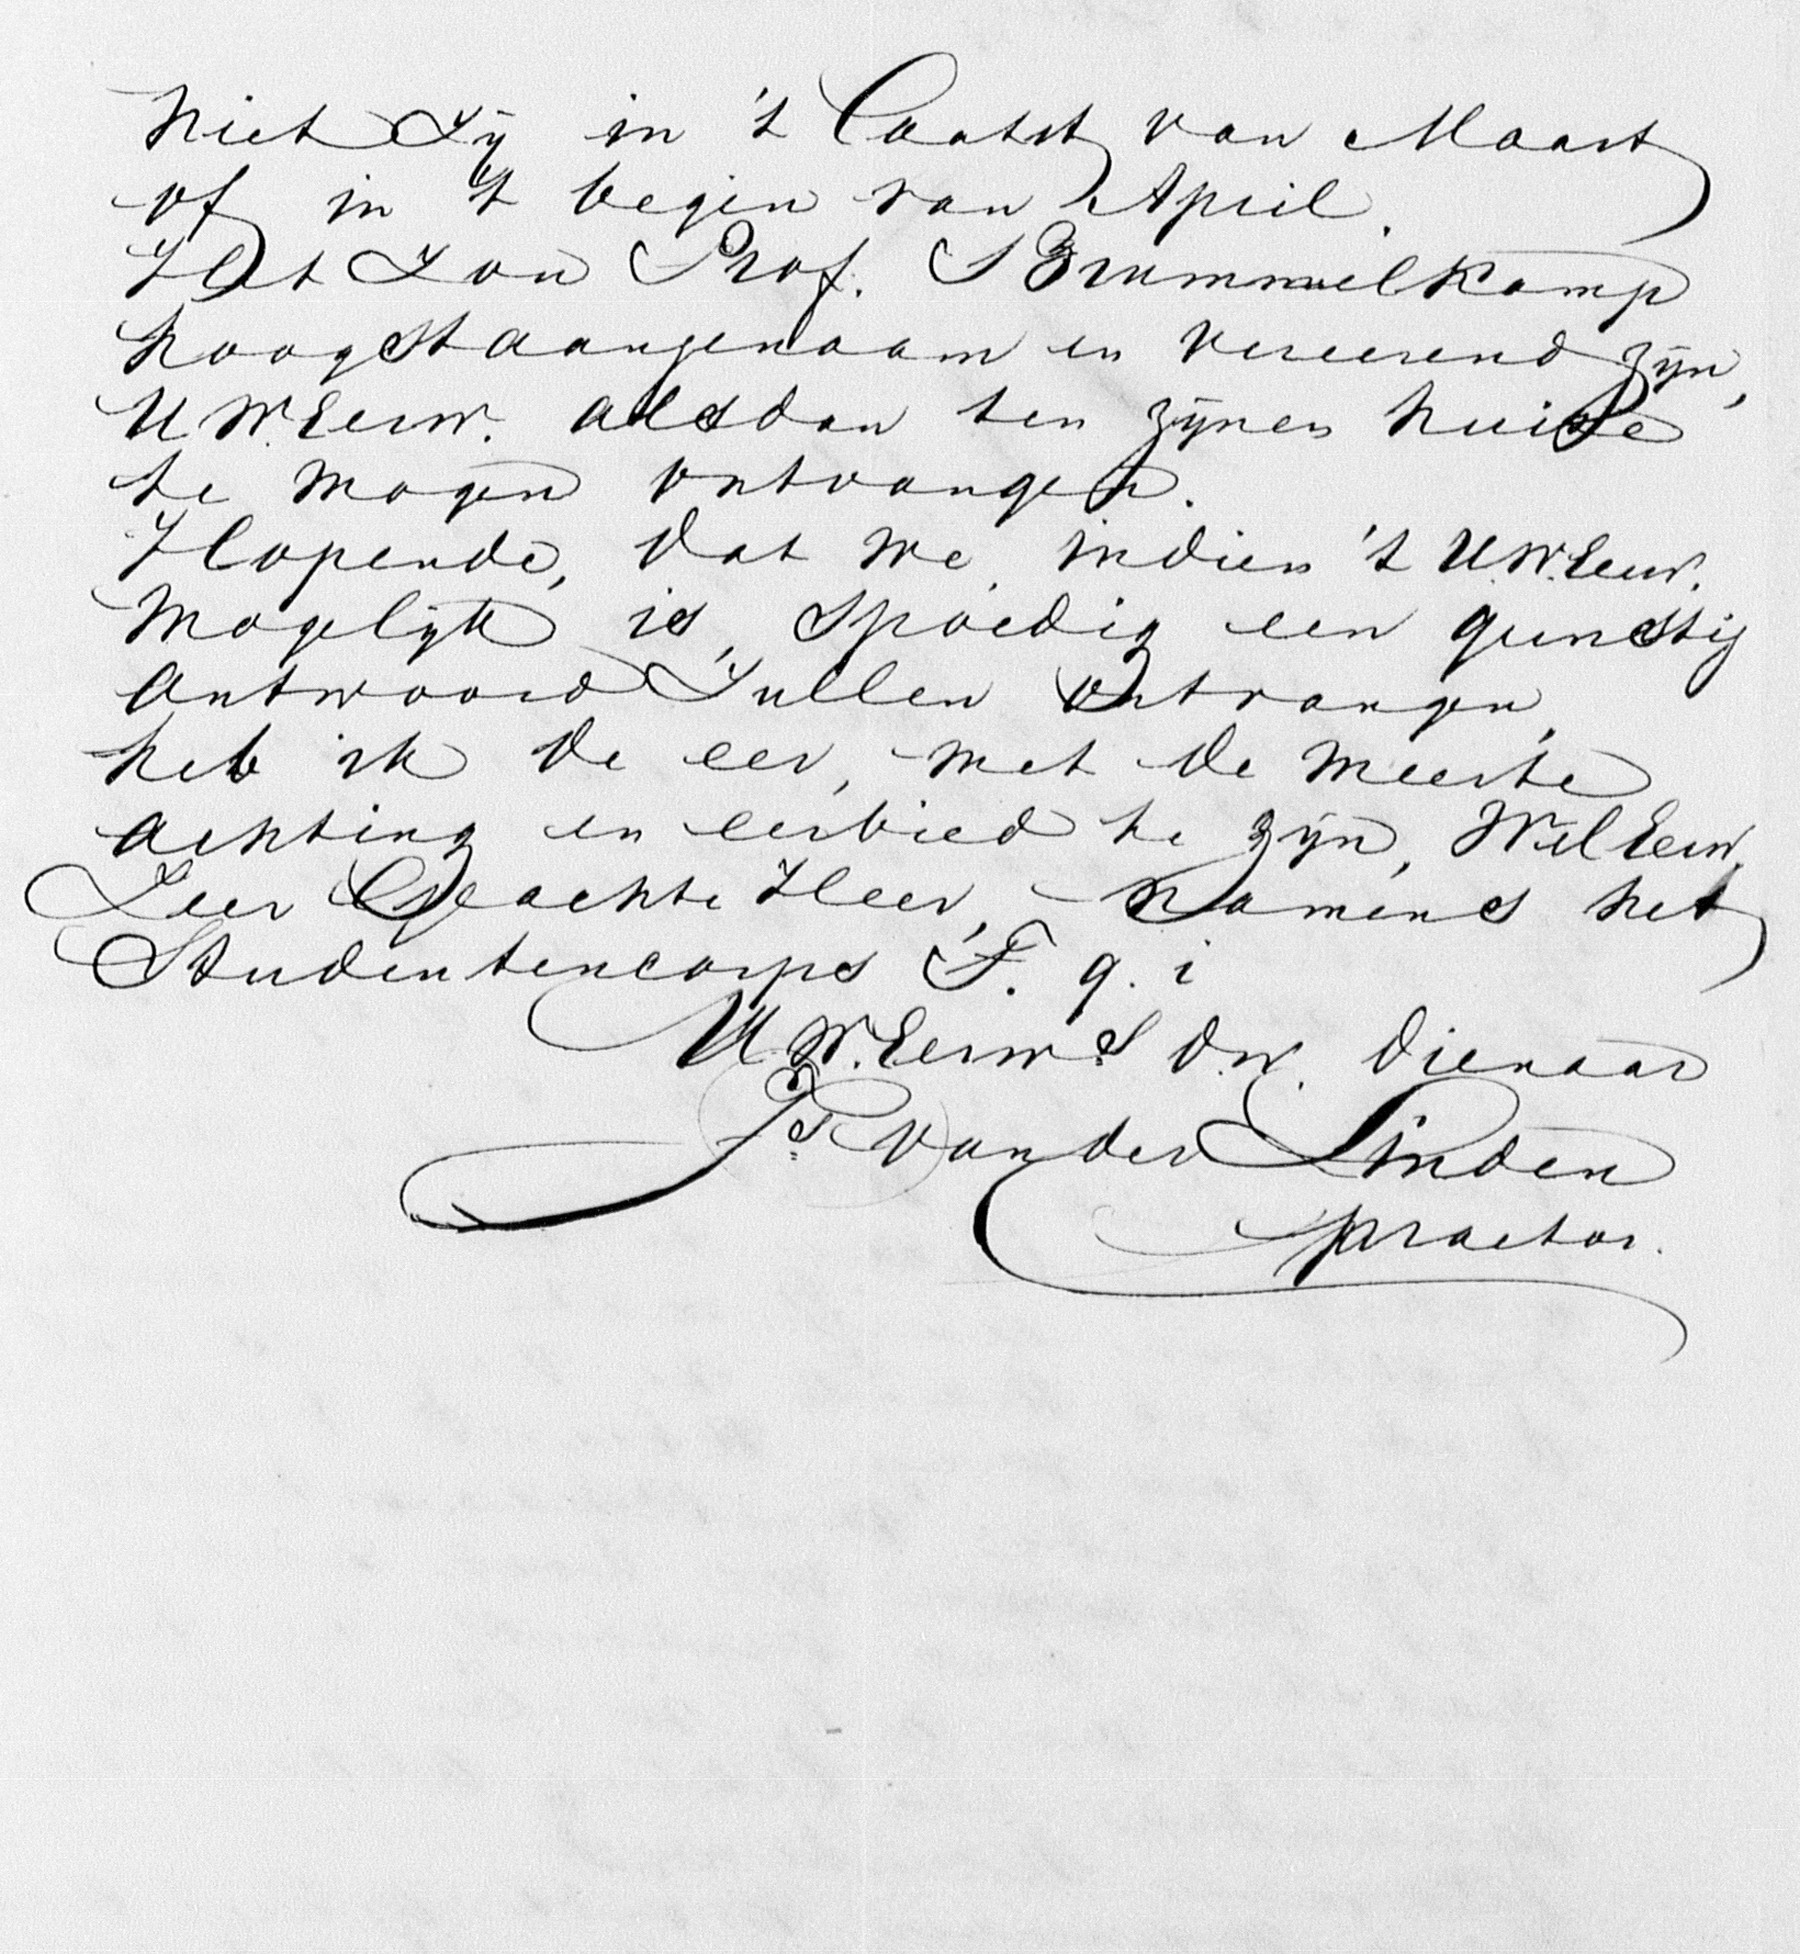 hiet Zij in 't laatst van Maart
of in 't begin van April.
Het Zou Prof. Brummelkamp
hoogst aangenaam en vereerend zijn,
UW.Eerw. alsdan ten zijnen huise
te mogen ontvangen.
Hopende, dat we, indien 't U.W.Eerw.
mogelijk is, spoedig een gunstig
antwoord Zullen Ontvangen,
heb ik de eer, met de meeste
achting en eerbied te zijn, WelEerw.
Zeer Geachte Heer, namens het
Studentencorps F. q. i
U.W.Eerw.s d.w. dienaar
Js van der Linden
praetor.